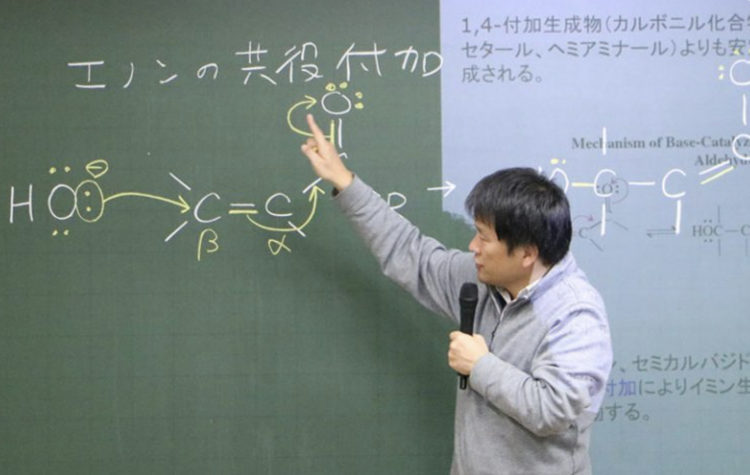 エノンの共役付加
O
HO C=C R → O C C
β α
1,4-付加生成物(カルボニル化合
セタール、ヘミアミナール)よりも安
成される。
Mechanism of
:O:
HOC C
セミカルバジド
付加によりイミン生
する。